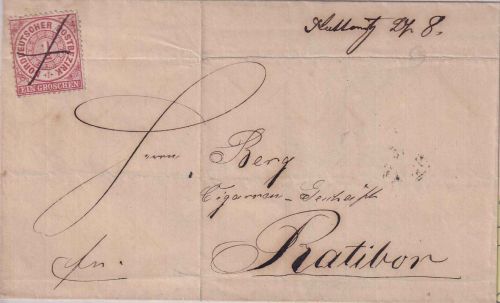 NORDDEUTSCHER POSTBEZIRK
1
EIN GROSCHEN
Kattowitz 27/8.
Herrn Berg
Cigarren-Geschäft
Ratibor
fr.